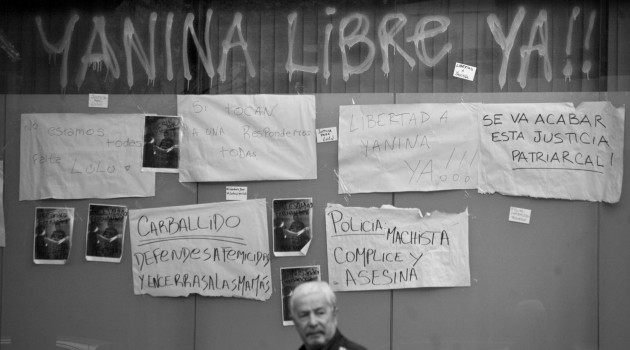 YANINA LIBRE YA!!
No estamos todas
Falta
LOLO
SI TOCAN
A UNA RESPONDEMOS
TODAS
LIBERTAD A
YANINA
YA!!!
SE VA ACABAR
ESTA JUSTICIA
PATRIARCAL!
CARBALLIDO
DEFENDES A FEMICIDAS
Y ENCERRAS A LAS MAMÁS
POLICIA MACHISTA
COMPLICE Y
ASESINA